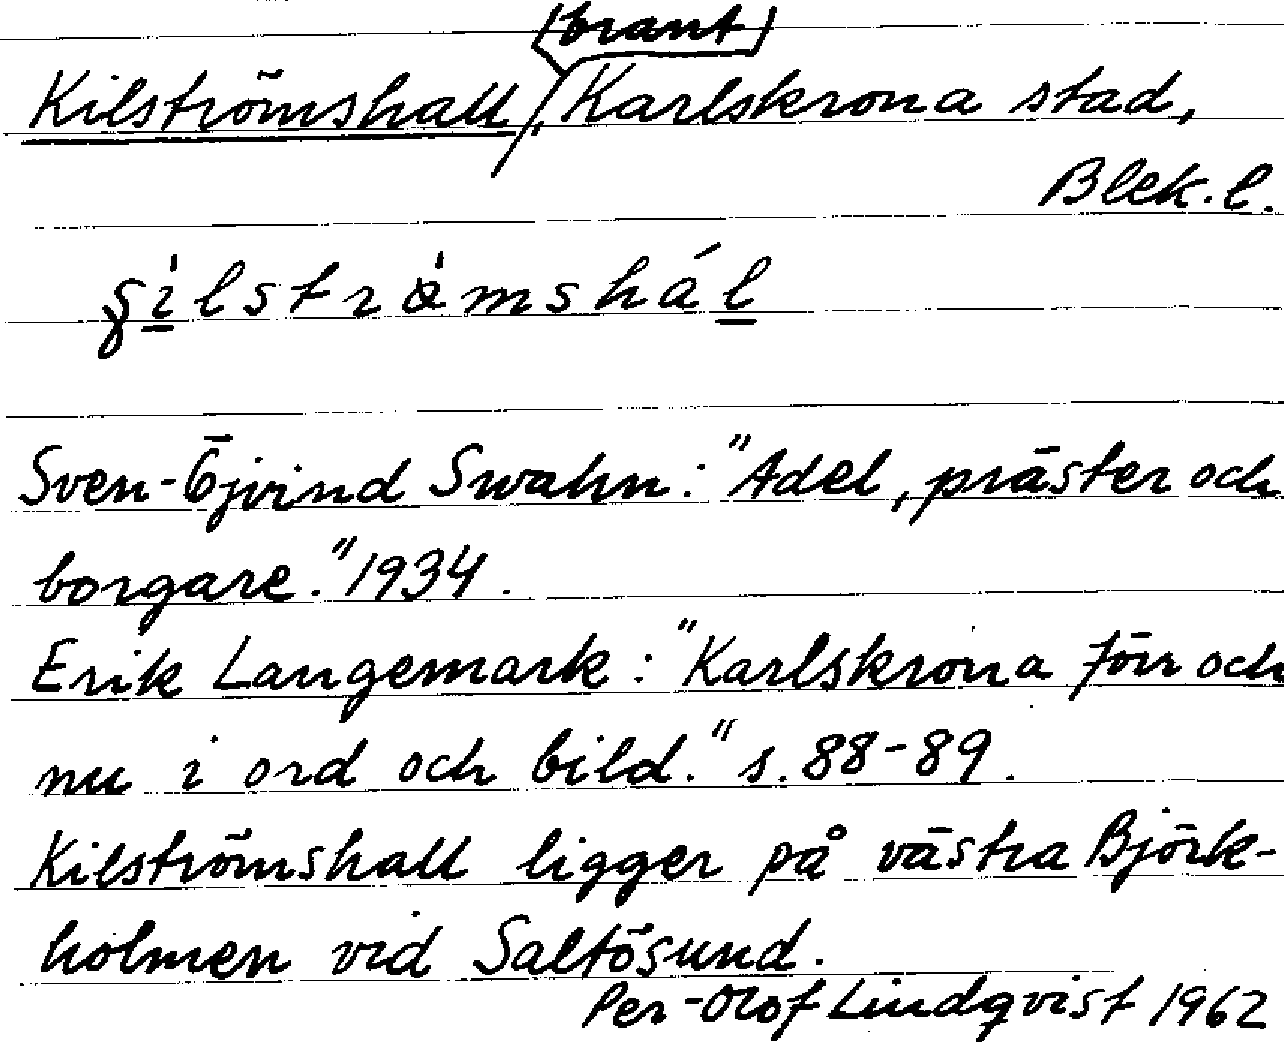 (brant)
Kilströmshall, Karlskrona stad,
Blek. l.
Sven-Öjvind Swahn: "Adel, präster och
borgare." 1934.
Erik Langemark: "Karlskrona förr och
nu i ord och bild." s. 88-89.
Kilströmshall ligger på västra Björk-
holmen vid Saltösund.
Per-Olof Lindqvist 1962